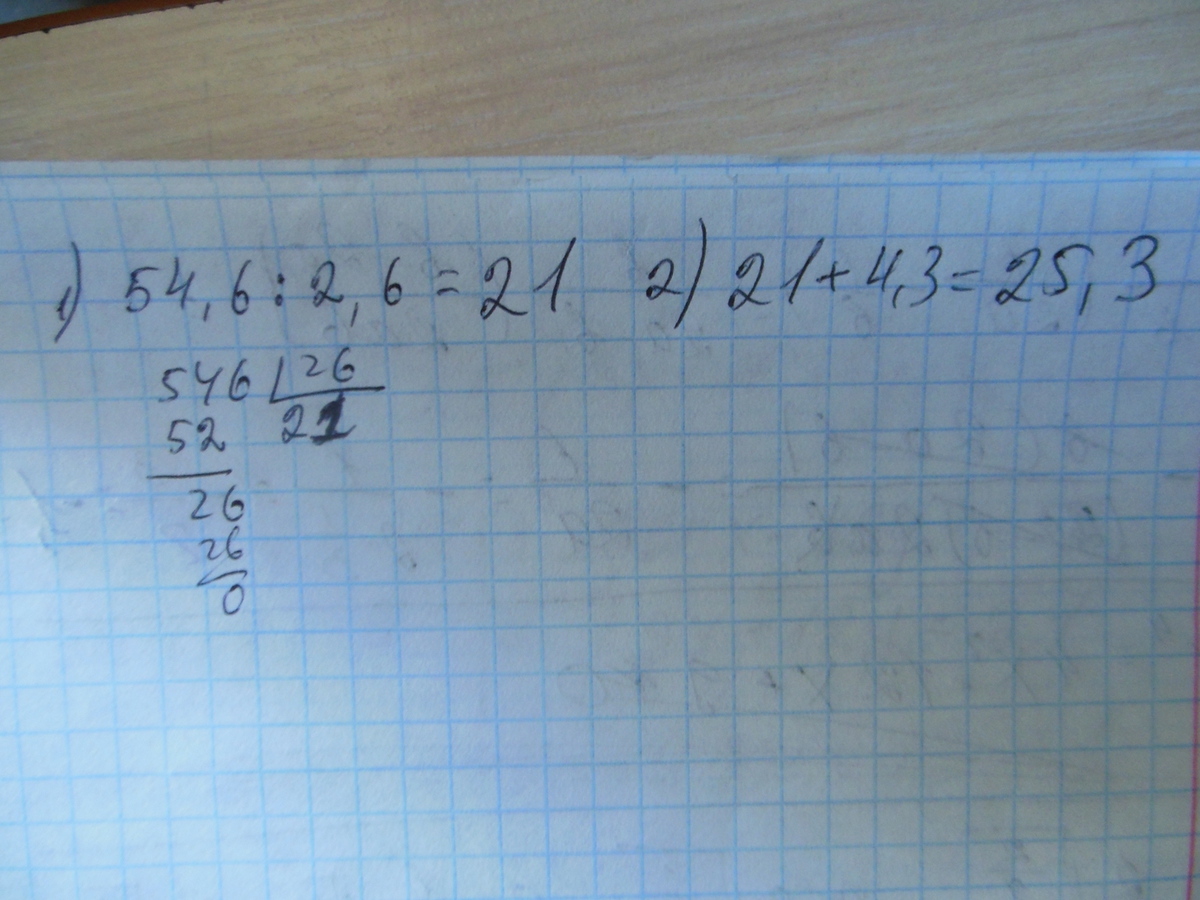 1) 54,6:2,6=21 2) 21+4,3=25,3
546 26
52 21
26
26
0